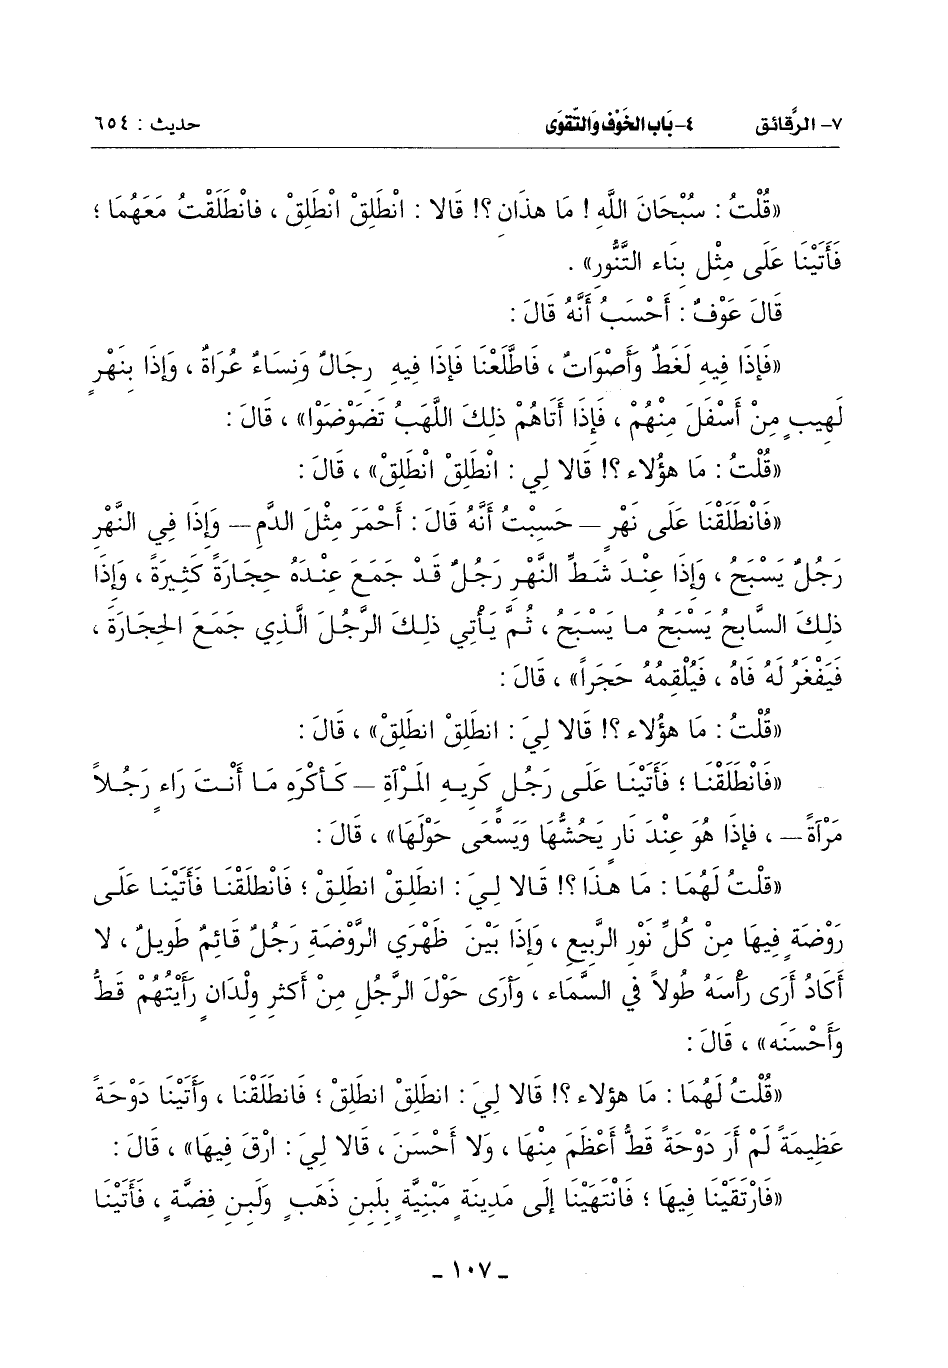 ٧- الرَّقائق ٤- بَاب الخَوْف وَالتَّقوَى حديث : ٦٥٤
«قُلْتُ : سُبْحَانَ اللَّهِ ! مَا هذَانِ ؟! قَالا : انْطَلِقْ انْطَلِقْ ، فانْطَلَقْتُ مَعَهُمَا ؛
فَأَتَيْنَا عَلَى مِثْلِ بِنَاءِ التَّنُّورِ» .
قَالَ عَوْفٌ : أَحْسَبُ أَنَّهُ قَالَ :
«فَإِذَا فِيهِ لَغَطٌ وَأَصْوَاتٌ ، فَاطَّلَعْنَا فَإِذَا فِيهِ رِجَالٌ وَنِسَاءٌ عُرَاةٌ ، وَإِذَا بِنَهْرِ
لَهِيبٍ مِنْ أَسْفَلَ مِنْهُمْ ، فَإِذَا أَتَاهُمْ ذلِكَ اللَّهَبُ تَضَوْضَوْا» ، قَالَ :
«قُلْتُ : مَا هؤُلاءِ ؟! قَالا لِي : انْطَلِقْ انْطَلِقْ» ، قَالَ :
«فَانْطَلَقْنَا عَلَى نَهْرٍ – حَسِبْتُ أَنَّهُ قَالَ : أَحْمَرَ مِثْلَ الدَّمِ – وَإِذَا فِي النَّهْرِ
رَجُلٌ يَسْبَحُ ، وَإِذَا عِنْدَ شَطِّ النَّهْرِ رَجُلٌ قَدْ جَمَعَ عِنْدَهُ حِجَارَةً كَثِيرَةً ، وَإِذَا
ذلِكَ السَّابِحُ يَسْبَحُ ما يَسْبَحُ ، ثُمَّ يَأْتِي ذلِكَ الرَّجُلَ الَّذِي جَمَعَ الحِجَارَةَ ،
فَيَفْغَرُ لَهُ فَاهُ ، فَيُلْقِمُهُ حَجَراً» ، قَالَ :
«قُلْتُ : مَا هؤُلاءِ ؟! قَالا لِيَ : انطَلِقْ انطَلِقْ» ، قَالَ :
«فَانْطَلَقْنَا ؛ فَأَتَيْنَا عَلَى رَجُلٍ كَرِيهِ المَرْآةِ – كَأَكْرَهِ مَا أَنْتَ رَاءٍ رَجُلاً
مَرْآةً – ، فإذَا هُوَ عِنْدَ نَارٍ يَحُشُّهَا وَيَسْعَى حَوْلَهَا» ، قَالَ :
«قلْتُ لَهُمَا : مَا هذَا ؟! قَالا لِيَ : انطَلِقْ انطَلِقْ ؛ فَانْطَلَقْنَا فَأَتَيْنَا عَلَى
رَوْضَةٍ فِيهَا مِنْ كُلِّ نَوْرِ الرَّبِيعِ ، وَإِذَا بَيْنَ ظَهْرَيِ الرَّوْضَةِ رَجُلٌ قَائِمٌ طَوِيلٌ ، لا
أَكَادُ أَرَى رَأْسَهُ طُولاً فِي السَّمَاءِ ، وَأرَى حَوْلَ الرَّجُلِ مِنْ أَكثرِ وِلْدَانٍ رَأَيْتُهُمْ قَطُّ
وَأَحْسَنَهِ» ، قَالَ :
«قُلْتُ لَهُمَا : مَا هؤُلاءِ ؟! قَالا لِيَ : انطَلِقْ انطَلِقْ ؛ فَانطَلَقْنَا ، وَأَتَيْنَا دَوْحَةً
عَظِيمَةً لَمْ أَرَ دَوْحَةً قَطُّ أَعْظَمَ مِنْهَا ، وَلا أَحْسَنَ ، قَالا لِيَ : ارْقَ فِيهَا» ، قَالَ :
«فَارْتَقَيْنَا فِيهَا ؛ فَانْتَهَيْنَا إِلَى مَدِينَةٍ مَبْنِيَّةٍ بِلَبِنِ ذَهَبٍ وَلَبِنِ فِضَّةٍ ، فَأَتَيْنَا
- ١٠٧ -